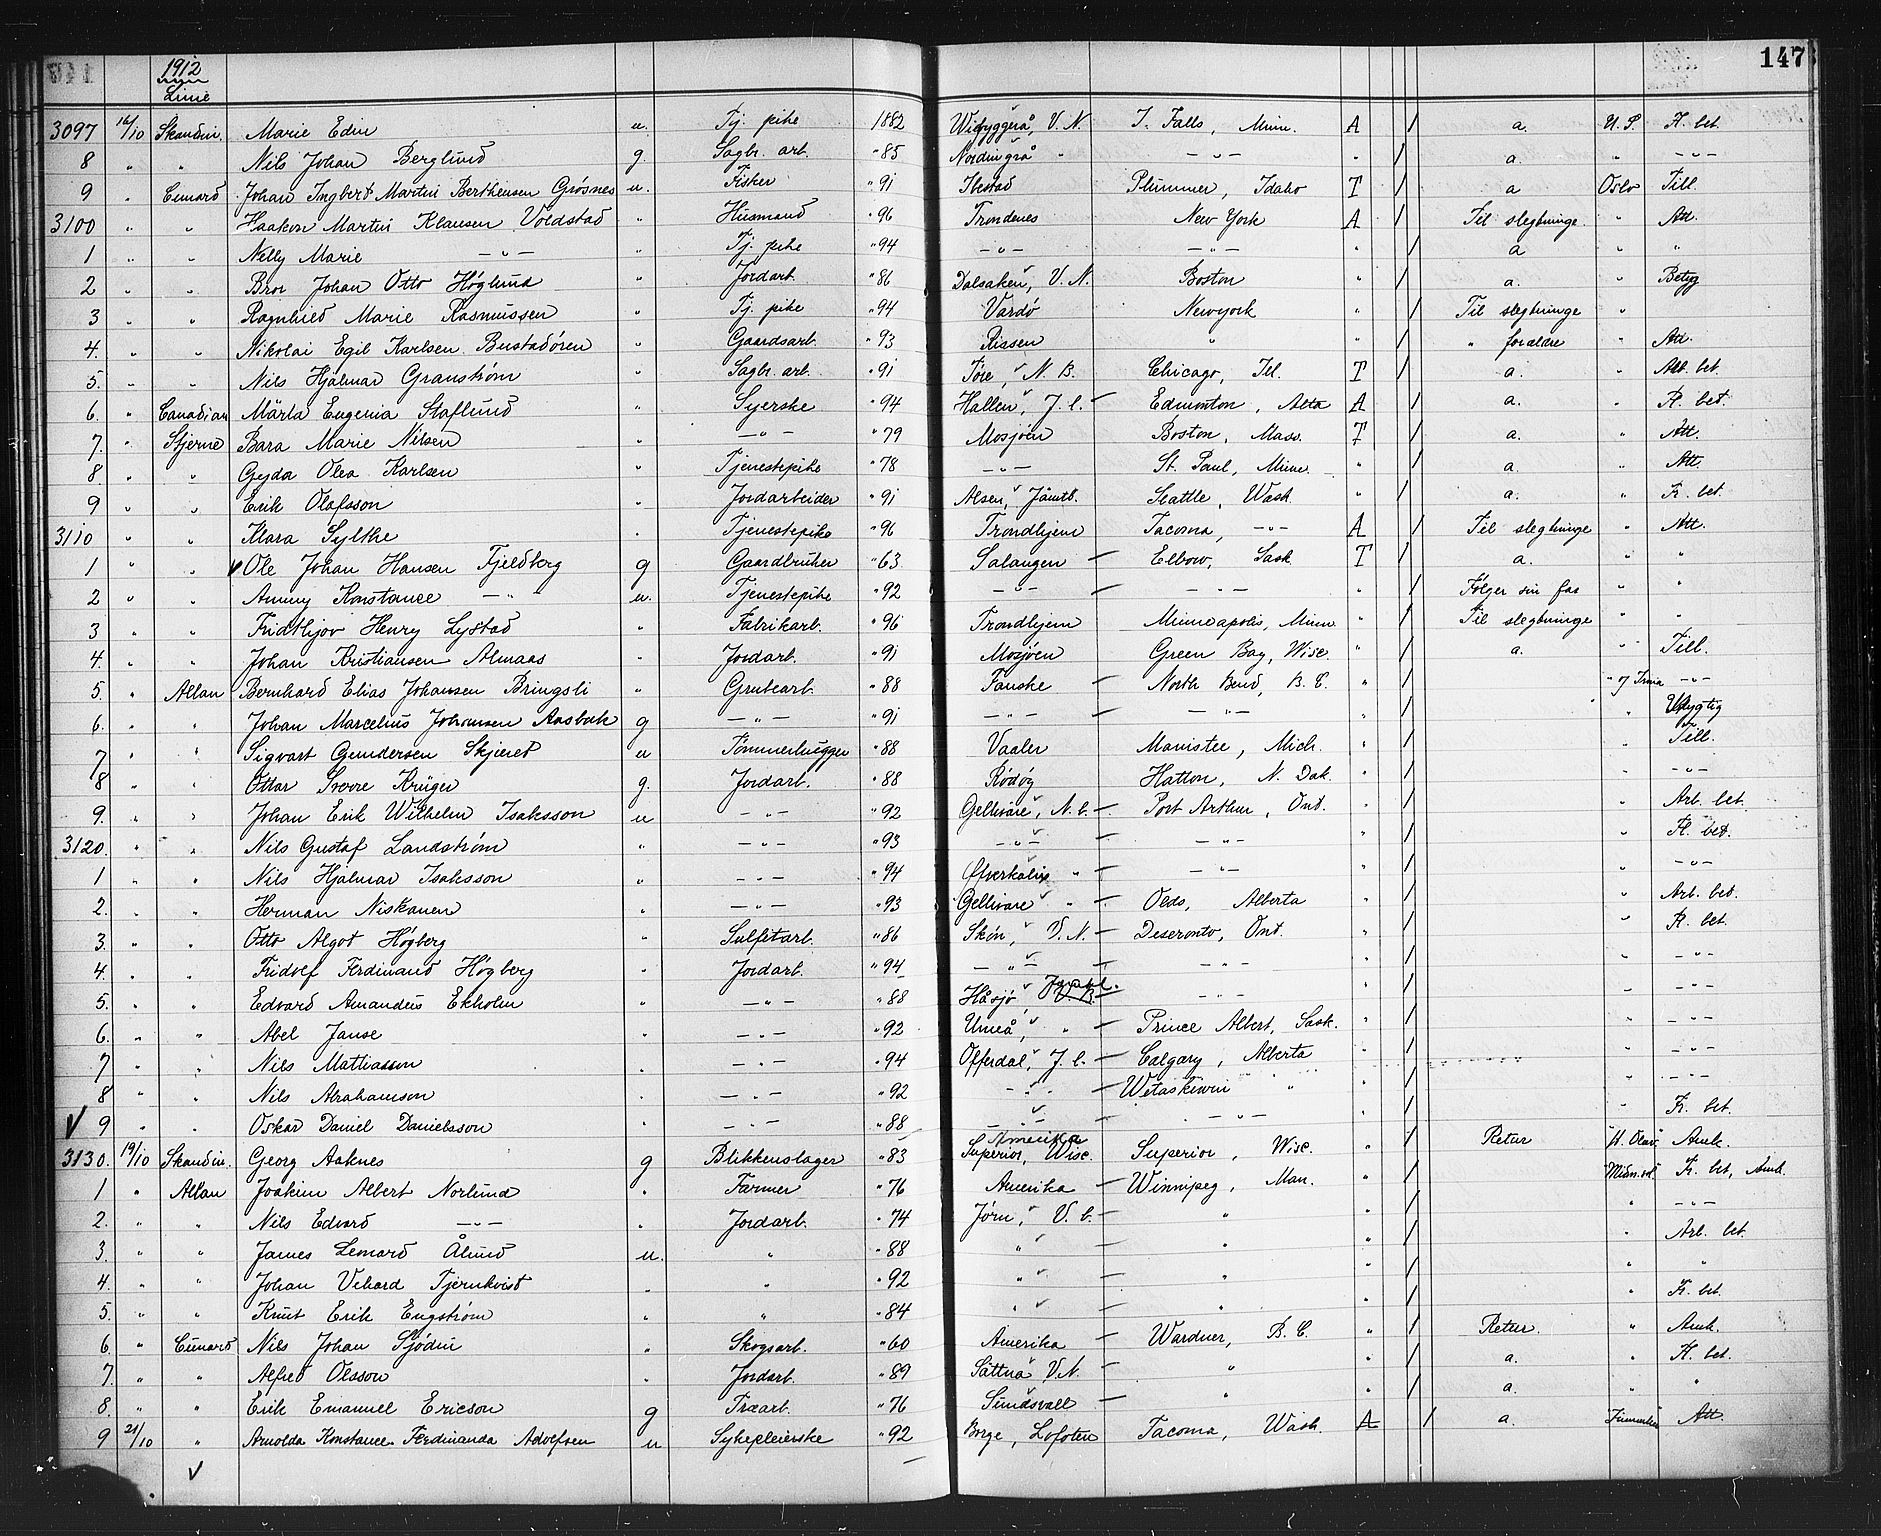 147
1912
Linie
3097 16/10 Skandin. Marie Edin u. Tj. pike 1882 Wibyggerå, V. N. I. Falls, Minn. A / a. U. S. Fl. bet.
8 " " Nils Johan Berglund g. Sagbr. arb. " 85 Nordingrå " — " — " / a. " — " —
9 " Cunard Johan Ingbert Martin Berthensen Grøsnes u. Fisker " 91 Ibestad Plummer, Idaho T / a Oslo Till.
3100 " " Haakon Martin Klausen Voldstad " Husmand " 96 Trondenes New York A / Til slegtninge. " Att.
1 " " Nelly Marie — " — " Tj. pike " 94 — " — — " — " / a " "
2 " " Bror Johan Otto Høglund " Jordarb. " 86 Dalsaken, V. N. Boston " / a. " Betyg
3 " " Ragnhild Marie Rasmussen " Tj. pike " 94 Vardö Newyork " / Til slegtninge "
4. " " Nikolai Egil Karlsen Bustadören " Gaardsarb. " 93 Rissen " " / " foreldre " Att.
5. " " Nils Hjalmar Granström " Sagbr. arb. " 91 Töre, N. B. Chicago, Ill. T / a. " Alt. bet.
6. " Canadian Märta Eugenia Staflund " Syerske " 94 Hallen, J. l. — Edmonton, Alta A / a. " Fl. bet.
7. " Stjerne Bara Marie Nilsen " — " — " 79 Mosjöen Boston, Mass. T / a. " Att.
8. " " Gyda Olea Karlsen " Tjenestepike " 78 — " — St. Paul, Minn. " / a. " Att.
9 " " Erik Olofsson " Jordarbeider " 91 Alsen, Jämtl. Seattle, Wash. " / a. " Fl. bet.
3110 " " Klara Sylthe " Tjenestepike " 96 Trondhjem Tacoma, — " — A / Til slegtninge " Att.
1 " " Ole Johan Hansen Fjeldberg g Gaardbruker " 63 Salangen — Elbow, Sask T / a. " "
2 " " Ammy Konstance — " — u. Tjenestepike " 92 — " — — — " — " / Følger sin far " "
3 " " Fridthjov Henry Lystad " Fabrikarb. " 96 Trondhjem Minneapolis, Minn " / Til slegtninge " "
4. " " Johan Kristiansen Almaas " Jordarb. " 91 Mosjöen Green Bay, Wisc. " / a. " Till.
5. " Allan Bernhard Elias Johansen Bringsli " Grubearb. " 88 Fauske — North Bend, B. C. " / " og Irma — " —
6. " " Johan Marcelius Johansen Aasbak g — " — " 91 — " — — — " — " / " Utygtig
7 " " Sigvart Gundersen Skjeret u Tömmerhugger " 88 Vaaler Manistee, Mich. " / " Till.
8 " " Ottar Sverre Krüger g. Jordarb. " 88 Rödöy Hatton, N. Dak. " / " — " —
9. " " Johan Erik Wilhelm Isaksson u — " — " 92 Gellivare, N. b. — Port Arthur, Ont. " / " Arb. bet.
3120. " " Nils Gustaf Landström " — " — " 93 — " — — — " — " / " Fl. bet.
1 " " Nils Hjalmar Isaksson " — " — " 94 Öfverkalix " — — " — " / " — " —
2. " " Herman Niskanen " — " — " 93 Gellivare " — Olds, Alberta " / " Arb. bet.
3. " " Otto Algot Högberg " Sulfitarb. " 86 Skön, V. N. — Deseronto, Ont. " / " Fl. bet.
4. " " Fridolf Ferdinand Högberg " Jordarb. " 94 — " — — — " — " / " — " —
5. " " Edvard Amandus Ekholm " — " — " 88 Håsjö, V. B. — — " — " / " — " —
6. " " Abel Janse " — " — " 92 Umeå, " — Prince Albert, Sask. " / " — " —
7 " " Nils Mattiasson " — " — " 94 Offerdal, J. l. — Calgary, Alberta " / " — " —
8 " " Nils Abrahamson " — " — " 92 — " — — Wetaskiwin " " / " — " —
9 " " Oskar Daniel Danielsson " — " — " 88 — " — — — " — " / " Fl. bet.
3130. 19/10 Skandin. Georg Aaknes g Blikkenslager " 83 Amerika Superior, Wisc. Superior, Wisc. " / Retur "H. Olav" Amk.
1 " Allan Joakim Albert Norlund " Farmer " 76 Amerika — Winnipeg, Man. " / Fl. bet, Amk.
2. " " Nils Edvard — " — " Jordarb. " 74 Jörn, V. b. — " " / " — " —
3. " " James Leonard Ålund u. " " 88 " — " " / " Arb. bet.
4. " " Johan Vikard Tjernkvist " " " 92 " — " " / " "
5. " " Knut Erik Engström " " " 84 " — " " / " Fl. bet.
6. " Cunard Nils Johan Sjödin " Skogsarb. " 60 Amerika — Wardner, B. C. " / Retur. " Amk.
7. " " Alfred Olsson " Jordarb. " 89 Sättna V. N. — " " / a. " Fl. bet.
8. " " Erik Emanuel Ericson g Træarb. " 76 Sundsvall — " " / a. " "
9 21/10 " Arnolda Konstance Ferdinanda Adolfsen u Sykepleierske " 92 Borge, Lofoten Tacoma, Wash. A / a. Att